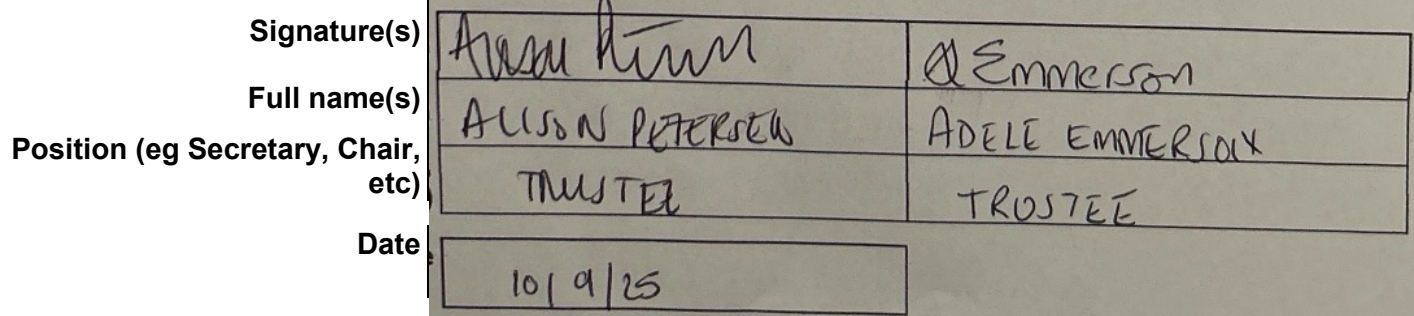 Signature(s) A Emmerson
Full name(s) ALISON PETERSEN ADELE EMMERSON
Position (eg Secretary, Chair,
etc) TRUSTEE TRUSTEE
Date 10/9/25